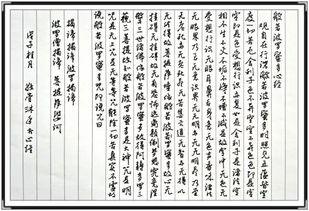 般若波羅蜜多心經
觀自在行深般若波羅蜜多時照見五蘊皆空
度一切苦厄舍利子色不異空空不異色色即是
空空即是色受想行識亦復如是舍利子是諸法空
相不生不滅不垢不淨不增不減是故空中無色無
受想行識無眼耳鼻舌身意無色聲香味觸法
無眼界乃至無意識界無無明亦無無明盡乃至
無老死亦無老死盡無苦集滅道無智亦無得以
無所得故菩提薩埵依般若波羅蜜多故心無
罣礙無罣礙故無有恐怖遠離顛倒夢想究竟涅
槃三世諸佛依般若波羅蜜多故得阿耨多羅三
藐三菩提故知般若波羅蜜多是大神咒是大明
咒是無上咒是無等等咒能除一切苦真實不虛故
說般若波羅蜜多咒即說咒曰
揭諦揭諦 波羅揭諦
波羅僧揭諦 菩提薩婆訶
戊子桂月 沐手 心經